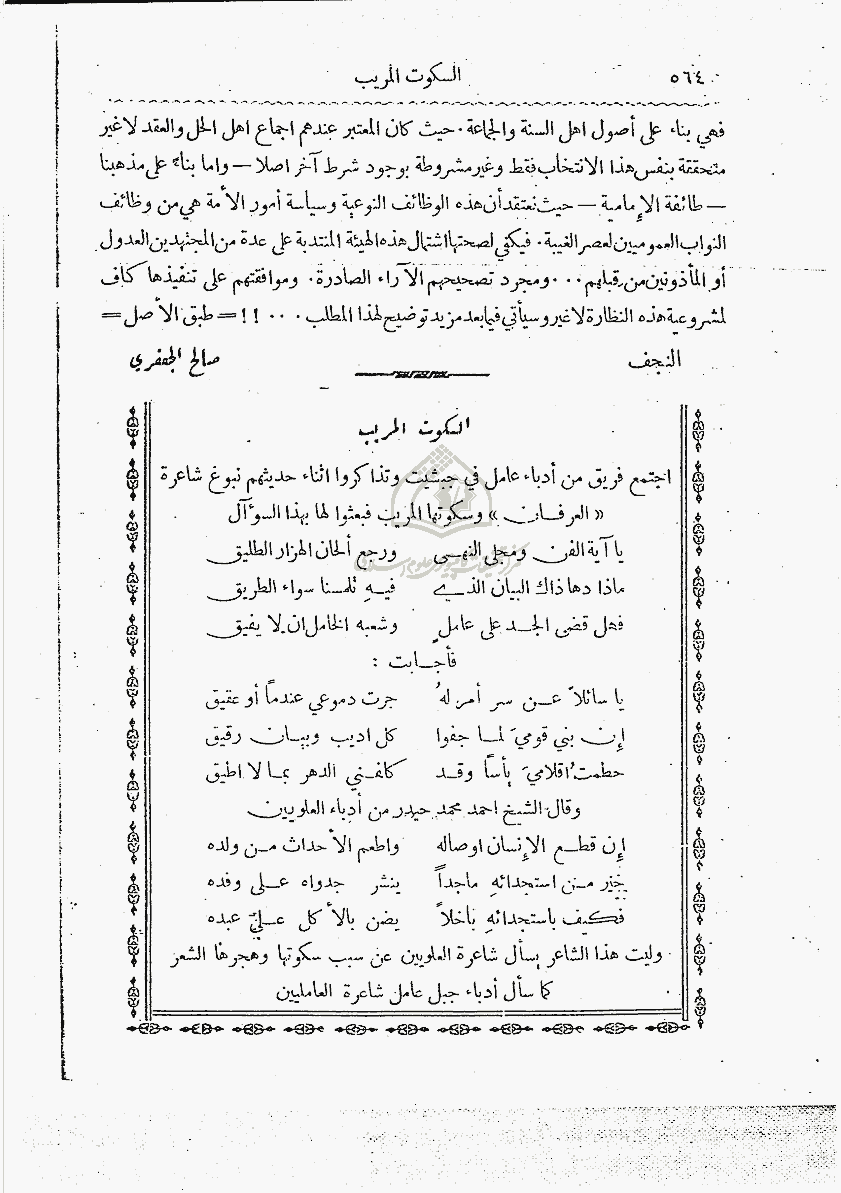 ٥٦٤ السكوت المريب
فهي بناء على أصول اهل السنة والجماعة. حيث كان المعتبر عندهم اجماع اهل الحل والعقد لا غير
متحققة بنفس هذا الانتخاب فقط وغير مشروطة بوجود شرط آخر اصلا – واما بناء على مذهبنا
– طائفة الإمامية – حيث نعتقد أن هذه الوظائف النوعية وسياسة أمور الأمة هي من وظائف
النواب العموميين لعصر الغيبة. فيكفي لصحتها اشتمال هذه الهيئة المنتدبة على عدة من المجتهدين العدول
أو المأذونين من قبلهم ... ومجرد تصحيحهم الآراء الصادرة. وموافقتهم على تنفيذها كاف
لمشروعية هذه النظارة لا غير وسيأتي فيما بعد مزيد توضيح لهذا المطلب . . . !! = طبق الأصل =
النجف صالح الجعفري
السكوت المريب
اجتمع فريق من أدباء عامل في جبشيت وتذاكروا اثناء حديثهم نبوغ شاعرة
« العرفان » وسكوتها المريب فبعثوا لها بهذا السوآل
يا آية الفن ومجلى النهى ورجع ألحان الهزار الطليق
ماذا دها ذاك البيان الذي فيه تلمسنا سواء الطريق
فهل قضى الجد على عامل وشعبه الخامل ان لا يفيق
فأجابت :
يا سائلاً عن سر أمر له جرت دموعي عندماً أو عقيق
إن بني قومي لما جفوا كل اديب وبيان رقيق
حطمت اقلامي يأساً وقد كلفني الدهر بما لا اطيق
وقال الشيخ احمد محمد حيدر من أدباء العلويين
إن قطع الإنسان اوصاله واطعم الأحداث من ولده
خير من استجدائه ماجداً ينثر جدواه على وفده
فكيف باستجدائه باخلاً يضن بالأكل على عبده
وليت هذا الشاعر يسأل شاعرة العلويين عن سبب سكوتها وهجرها الشعر
كما سأل أدباء جبل عامل شاعرة العامليين